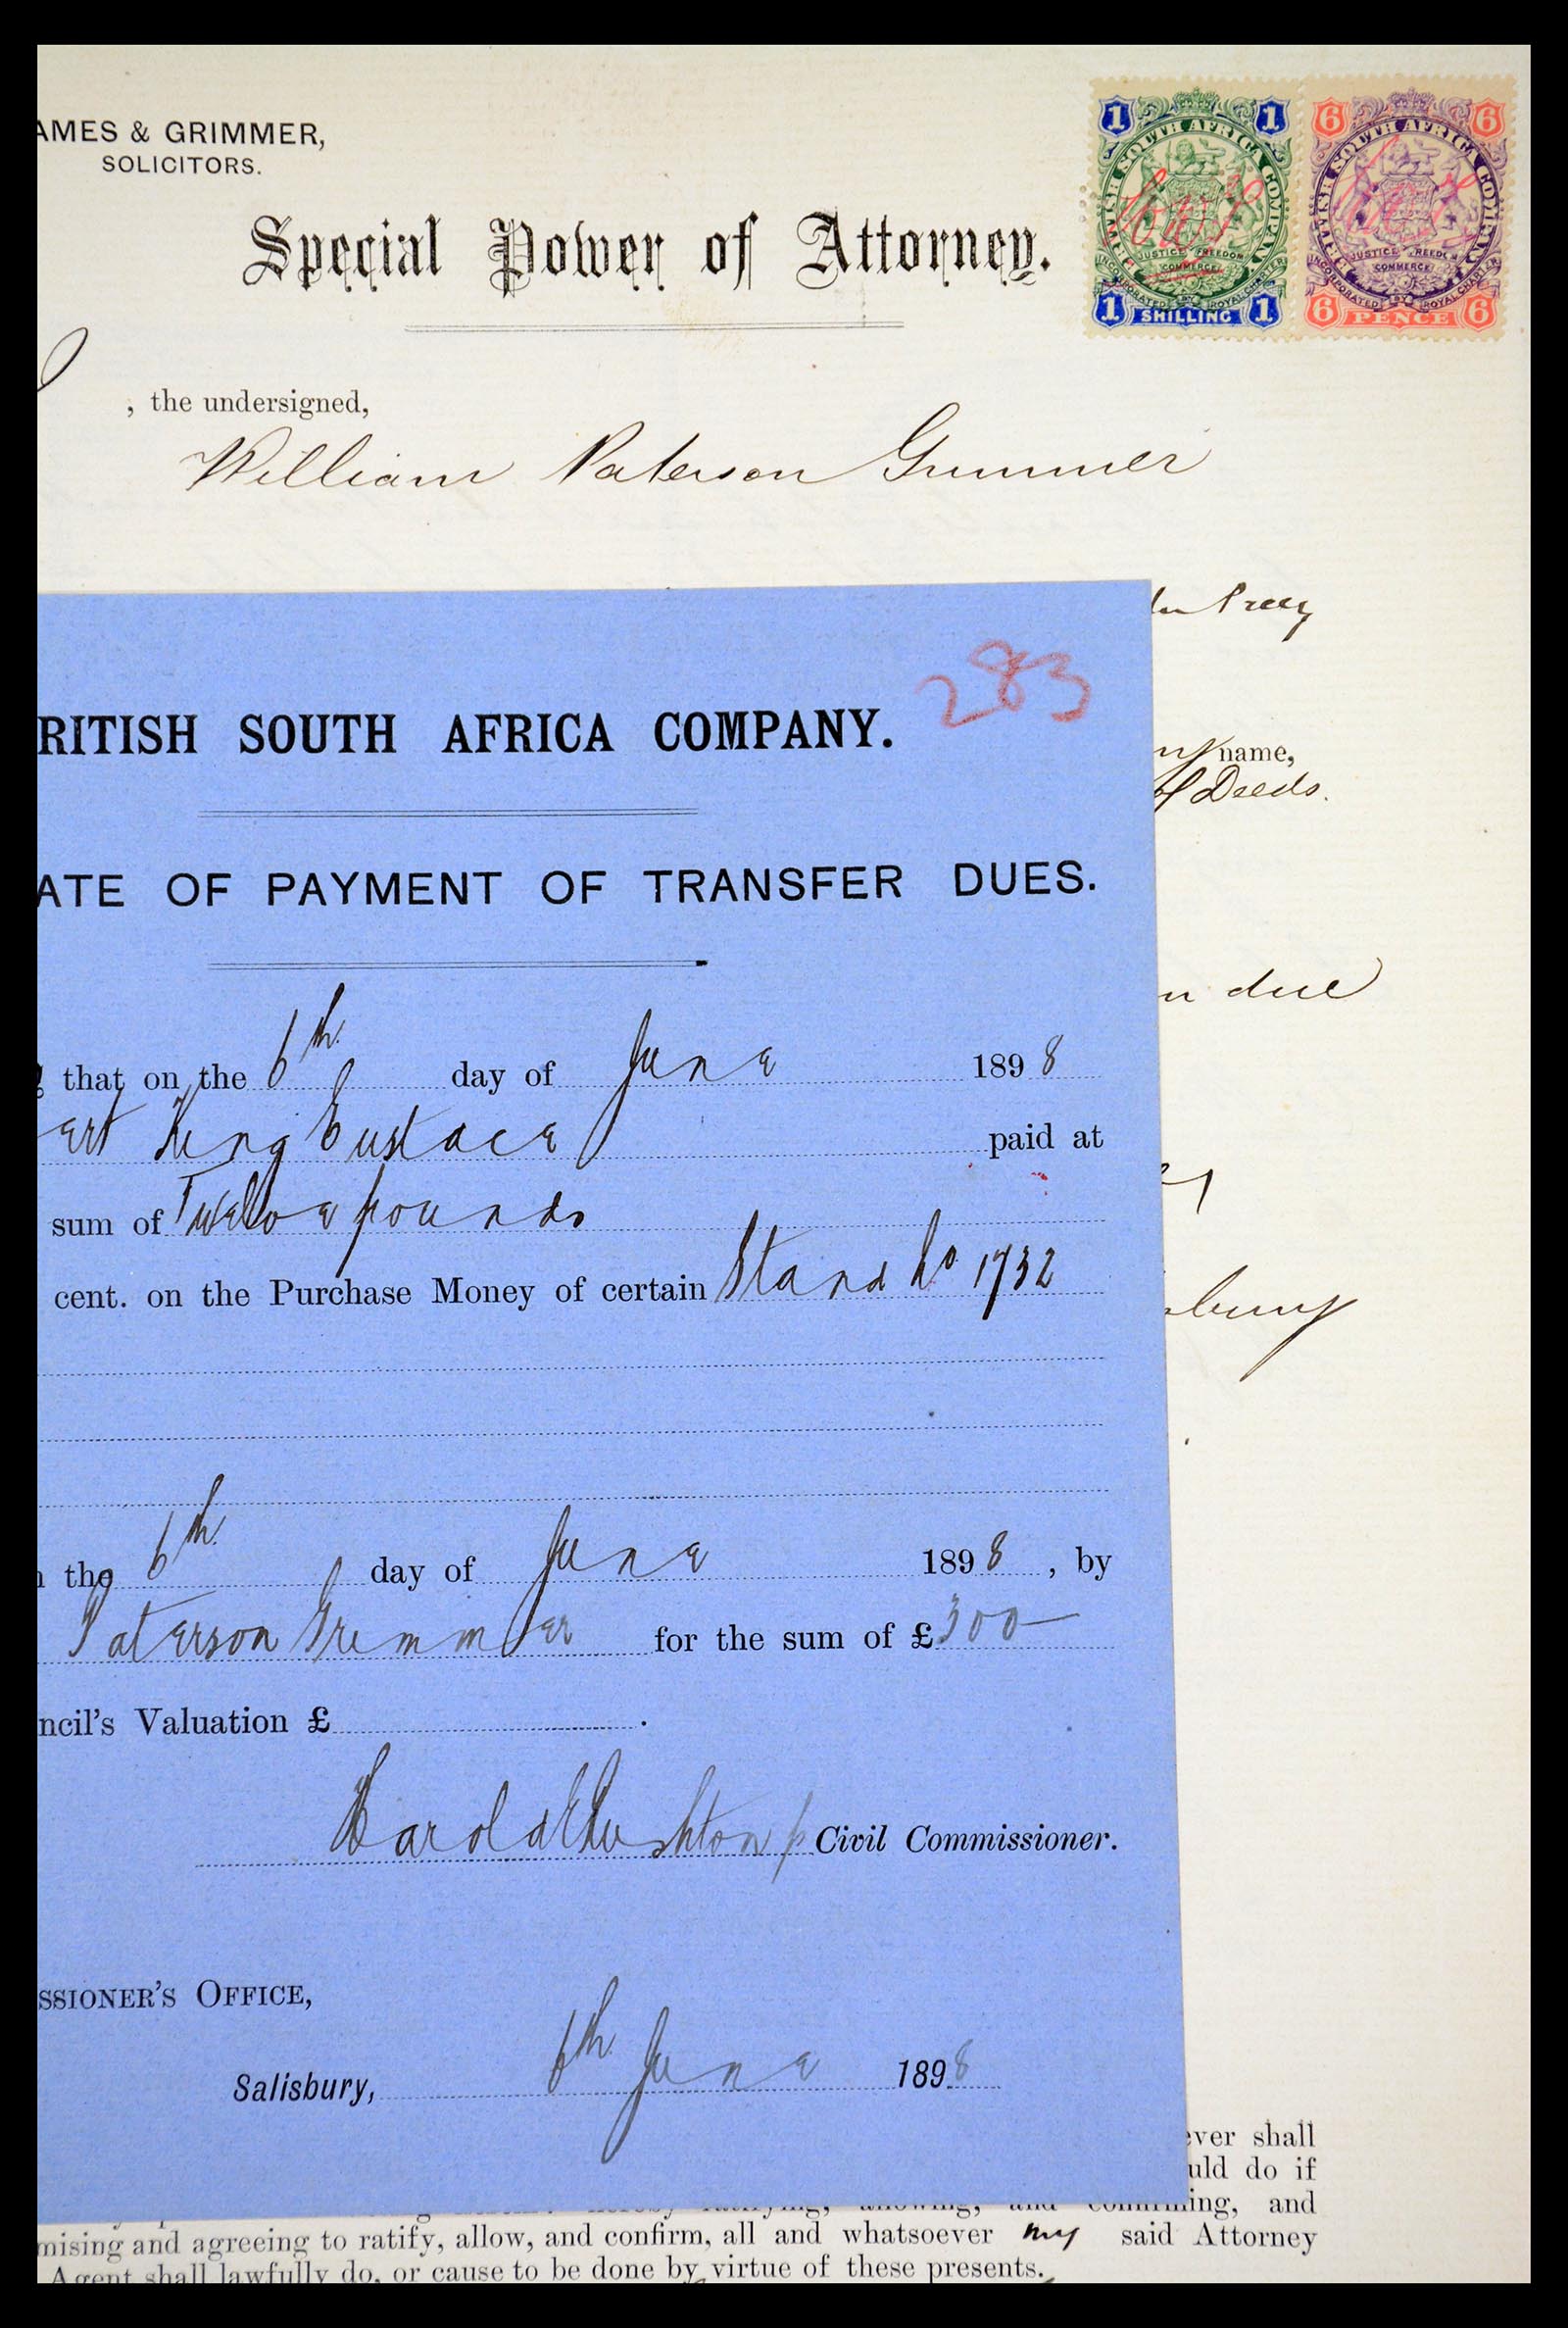 AMES & GRIMMER,
SOLICITORS.
Special Power of Attorney.
1 1
BRITISH SOUTH AFRICA COMPANY
JUSTICE FREEDOM
COMMERCE
INCORPORATED BY ROYAL CHARTER
1 SHILLING 1
6 6
BRITISH SOUTH AFRICA COMPANY
JUSTICE FREEDOM
COMMERCE
INCORPORATED BY ROYAL CHARTER
6 PENCE 6
, the undersigned,
William Paterson Grimmer
Preez
my name,
of Deeds.
n due
sbury
283
RITISH SOUTH AFRICA COMPANY.
ATE OF PAYMENT OF TRANSFER DUES.
g that on the 6th day of June 1898
ert King Eustace paid at
sum of Twelve pounds
cent. on the Purchase Money of certain Stand No 1732
n the 6th day of June 1898, by
Paterson Grimmer for the sum of £300
ncil's Valuation £ .
Civil Commissioner.
SSIONER'S OFFICE,
Salisbury, 6th June 1898
ever shall
uld do if
hereby ratifying, allowing, and confirming, and
mising and agreeing to ratify, allow, and confirm, all and whatsoever my said Attorney
Agent shall lawfully do, or cause to be done by virtue of these presents.